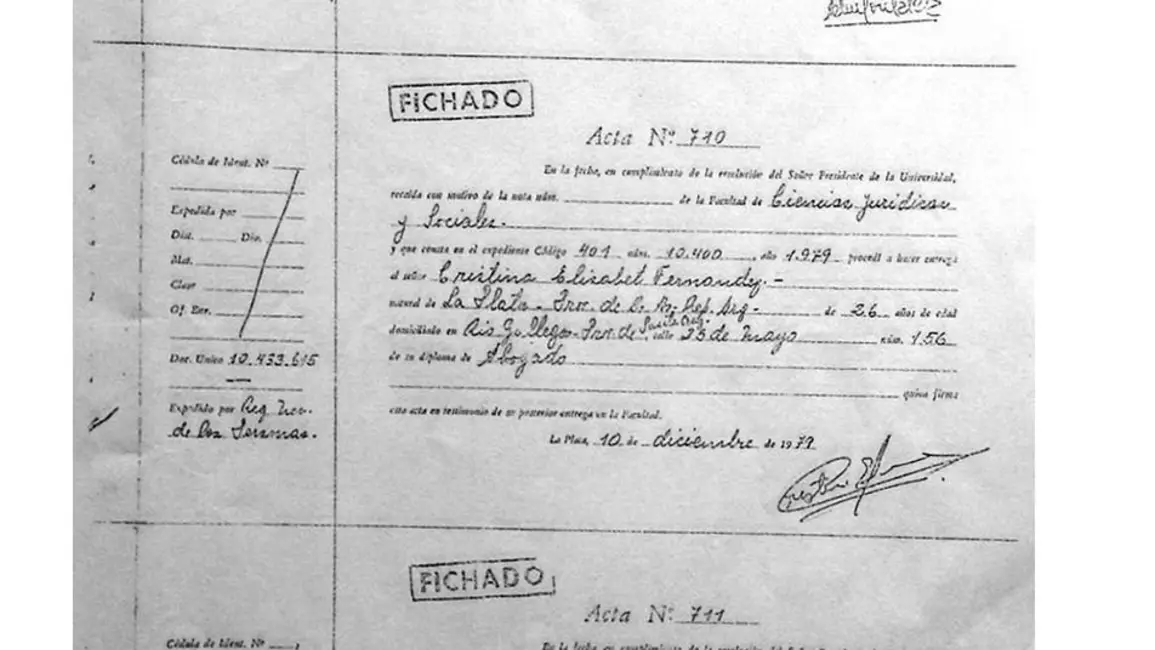 FICHADO
Acta Nº 710
Cédula de Ident. Nº
En la fecha, en cumplimiento de la resolución del Señor Presidente de la Universidad,
recaída con motivo de la nota núm. de la Facultad de Ciencias Jurídicas
Expedida por
y Sociales.
Dist. Div.
y que consta en el expediente Código 401 núm. 10.400, año 1.979 procedí a hacer entrega
Mat.
al señor Cristina Elisabet Fernandez.-
Clase
natural de La Plata - Prov. de B. As. Rep. Arg - de 26 años de edad
Of. Enr.
domiciliado en Rio Gallegos - Prov. de Santa Cruz - calle 25 de Mayo núm. 156
Doc. Unico 10.433.615
de su diploma de Abogado
quien firma
Expedido por Reg. Nac.
de las Personas.
esta acta en testimonio de su posterior entrega en la Facultad.
La Plata, 10 de diciembre de 1979
FICHADO
Acta Nº 711
Cédula de Ident. Nº
En la fecha, en cumplimiento de la resolución del Señor Presidente de la Universidad,